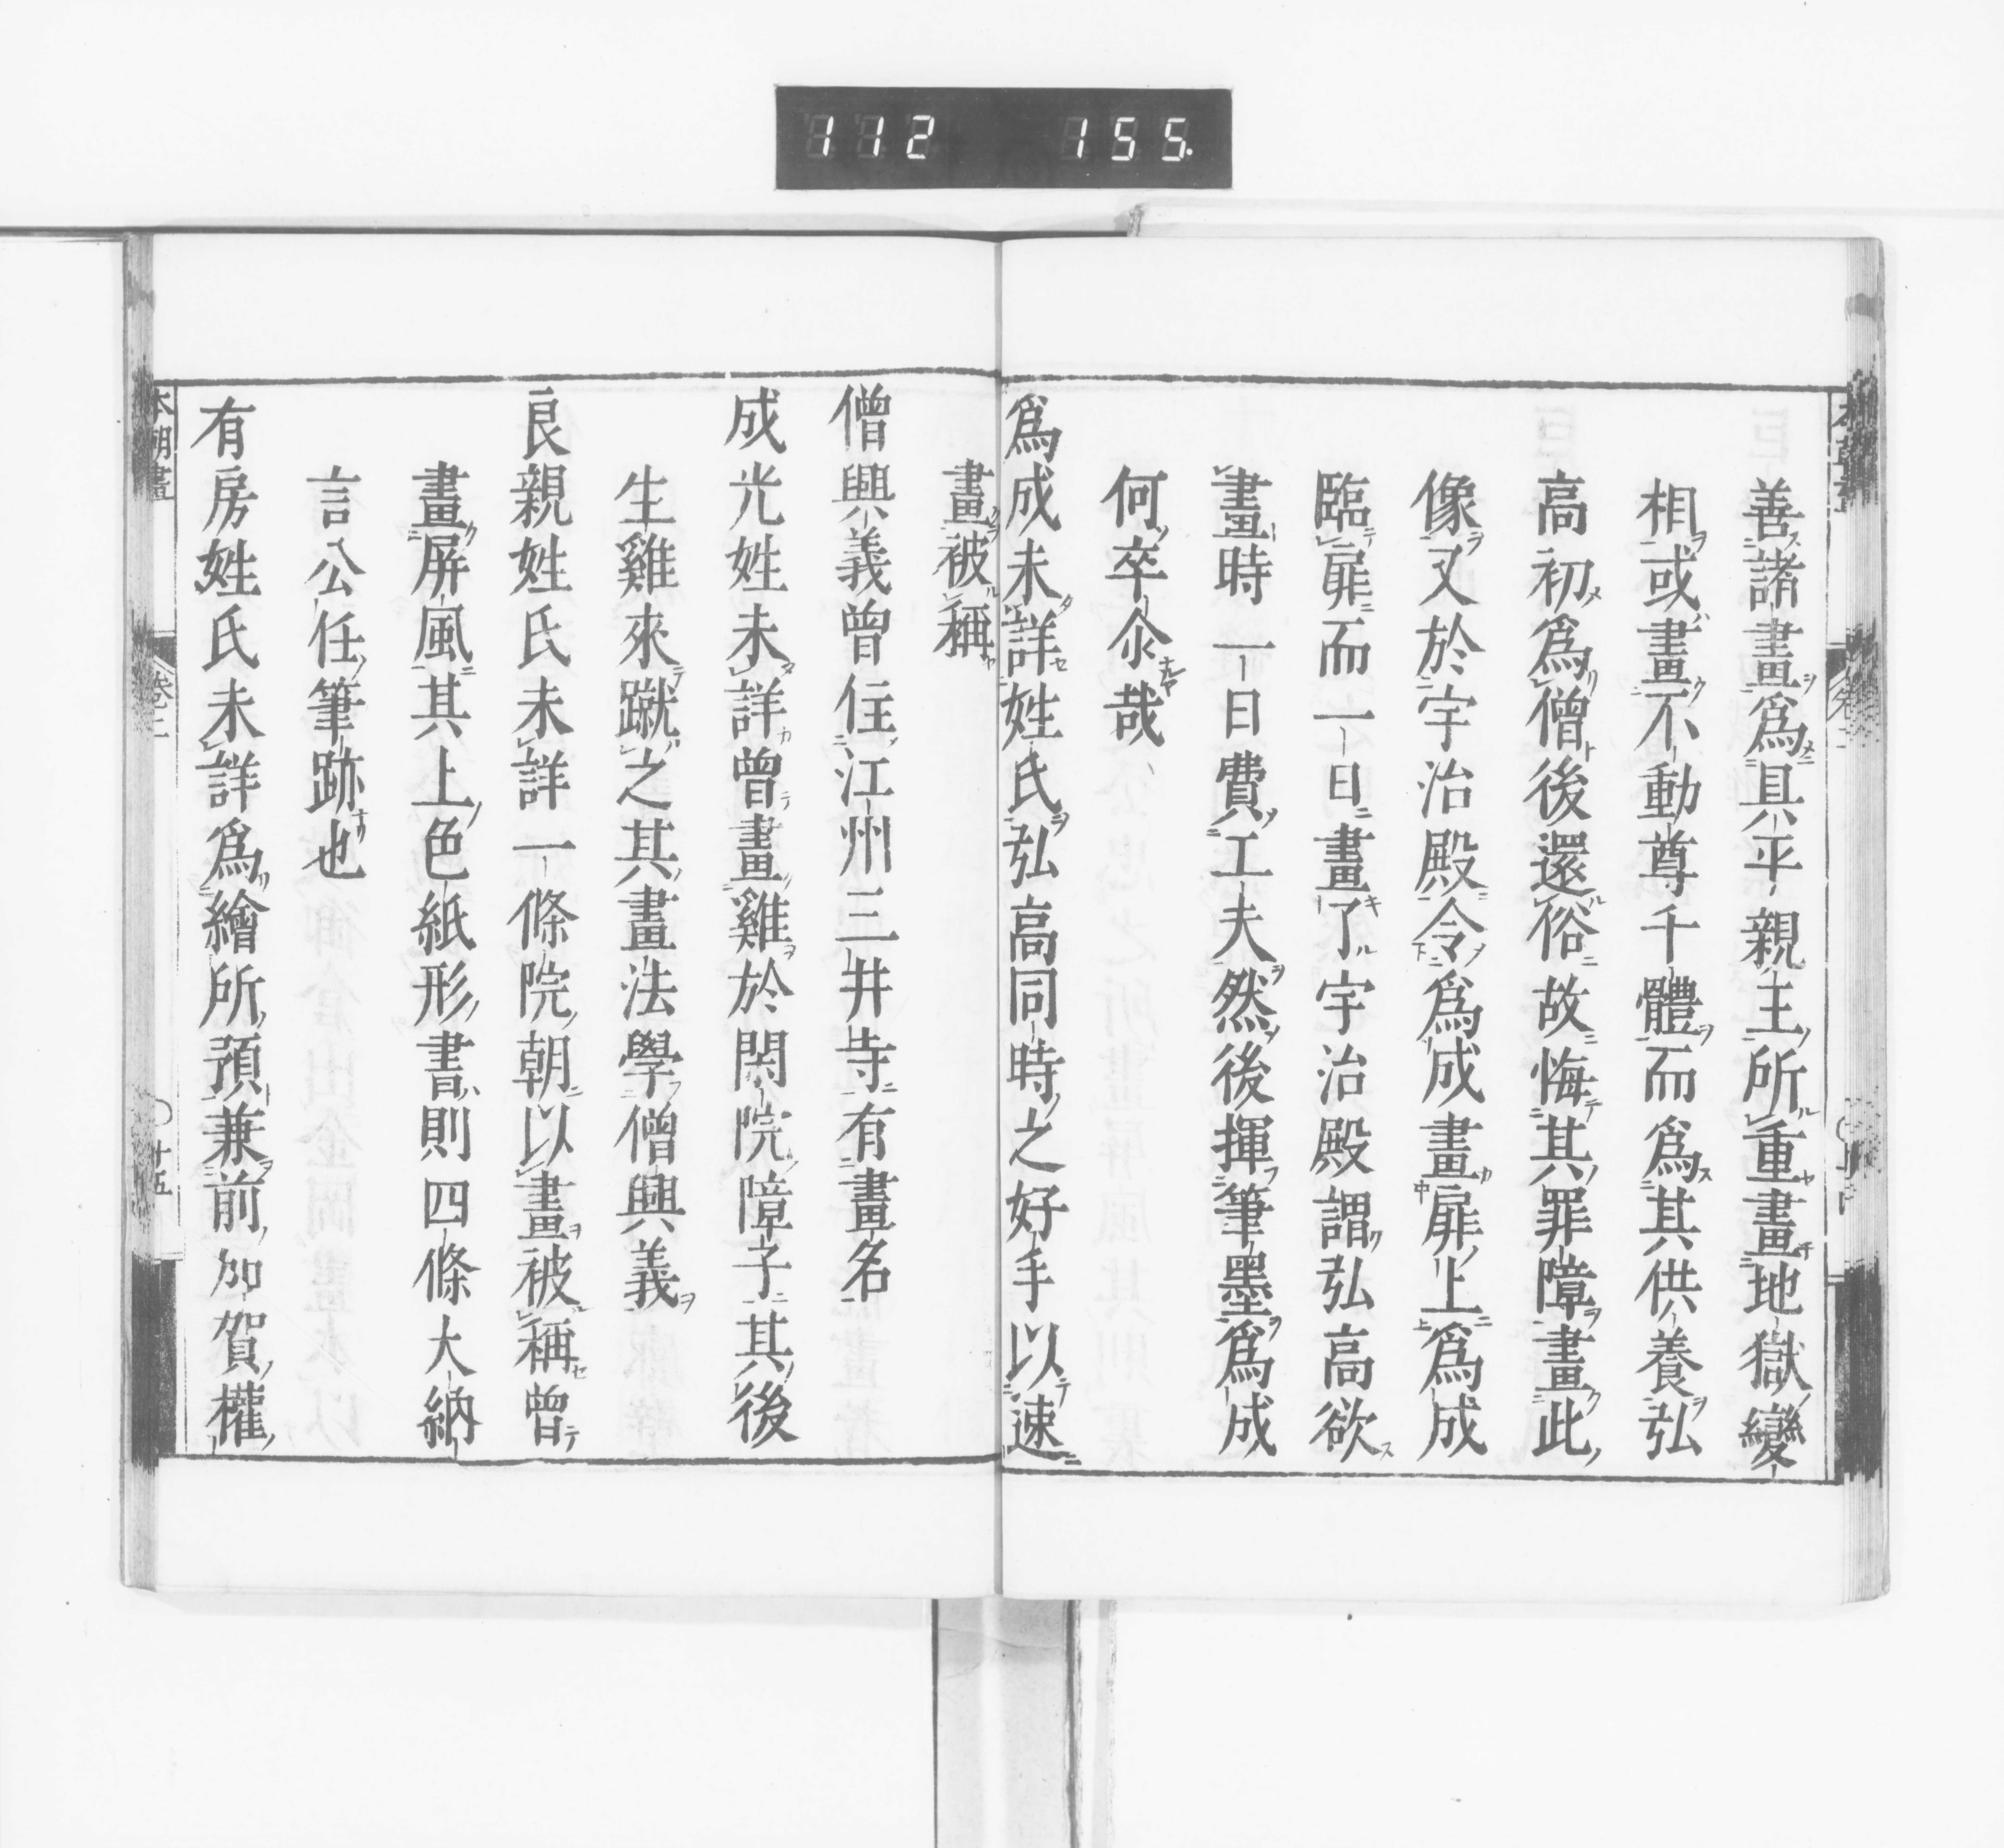 112 155.
善諸畫爲具平親王所重畫地獄變
相或畫不動尊千體而爲其供養弘
高初爲僧後還俗故悔其罪障畫此
像又於宇治殿令爲成畫扉上爲成
臨扉而一日畫了宇治殿謂弘高欲
畫時一日費工夫然後揮筆墨爲成
何卒尒哉
爲成未詳姓氏弘高同時之好手以速
畫被稱
僧興義曾住江州三井寺有畫名
成光姓未詳曾畫雞於閑院障子其後
生雞來蹴之其畫法學僧興義
良親姓氏未詳一條院朝以畫被稱曾
畫屏風其上色紙形書則四條大納
言公任筆跡也
有房姓氏未詳爲繪所預兼前加賀權
本朝畫 卷二 十五